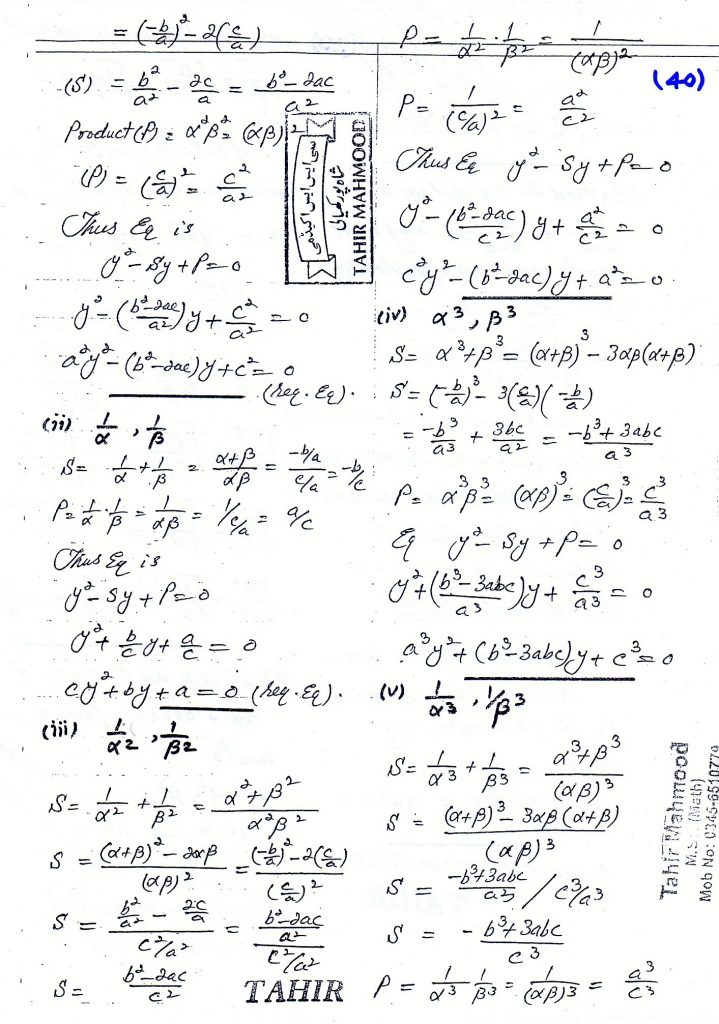 = (-b/a)² - 2(c/a)
(S) = b²/a² - 2c/a = b²-2ac/a²
Product (P) = α²β² = (αβ)²
(P) = (c/a)² = c²/a²
Thus Eq is
y² - Sy + P = 0
y² - (b²-2ac/a²)y + c²/a² = 0
a²y² - (b²-2ac)y + c² = 0
(Req. Eq).
(ii) 1/α , 1/β
S = 1/α + 1/β = α+β/αβ = -b/a / c/a = -b/c
P = 1/α · 1/β = 1/αβ = 1/c/a = a/c
Thus Eq is
y² - Sy + P = 0
y² + b/c y + a/c = 0
cy² + by + a = 0 (Req. Eq).
(iii) 1/α² , 1/β²
S = 1/α² + 1/β² = α²+β²/α²β²
S = (α+β)² - 2αβ/(αβ)² = (-b/a)² - 2(c/a)/(c/a)²
S = b²/a² - 2c/a / c²/a² = b²-2ac/a² / c²/a²
S = b²-2ac/c²
TAHIR
P = 1/α² · 1/β² = 1/(αβ)²
(40)
P = 1/(c/a)² = a²/c²
Thus Eq y² - Sy + P = 0
y² - (b²-2ac/c²)y + a²/c² = 0
c²y² - (b²-2ac)y + a² = 0
(iv) α³ , β³
S = α³+β³ = (α+β)³ - 3αβ(α+β)
S = (-b/a)³ - 3(c/a)(-b/a)
= -b³/a³ + 3bc/a² = -b³+3abc/a³
P = α³β³ = (αβ)³ = (c/a)³ = c³/a³
Eq y² - Sy + P = 0
y² + (b³-3abc/a³)y + c³/a³ = 0
a³y² + (b³-3abc)y + c³ = 0
(v) 1/α³ , 1/β³
S = 1/α³ + 1/β³ = α³+β³/(αβ)³
S = (α+β)³ - 3αβ(α+β)/(αβ)³
S = -b³+3abc/a³ / c³/a³
S = - b³+3abc/c³
P = 1/α³ 1/β³ = 1/(αβ)³ = a³/c³
سی ایس ایس اکیڈمی
TAHIR MAHMOOD
Tahir Mahmood
M.S. (Math)
Mob No: 0345-6510779